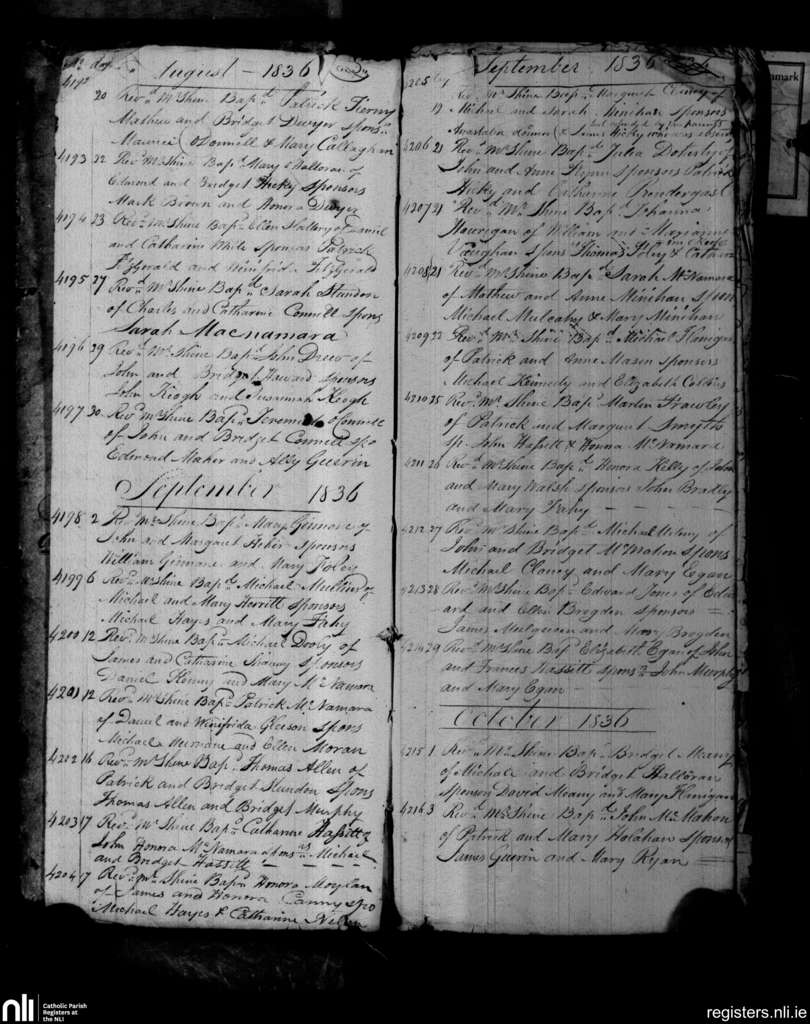 No. day
August - 1836
4192
20 Revd. Mc.Shine Bapd. Patrick Fierny
Mathew and Bridget Dwyer spons
Maurice O'Donnell & Mary Callaghan
4193 22 Revd. Mc.Shine Bapd. Mary Halloran of
Edmond and Bridget Hicky sponsors
Mark Brown and Honora Dwyer
4194 23 Revd. Mc.Shine Bapd. Ellen Slattery of Daniel
and Catharine White sponsors Patrick
Fitzgerald and Winifrid Fitzgerald
4195 27 Revd. Mc.Shine Bapd. Sarah Slundon
of Charles and Catharine Connell spons
Sarah Macnamara
4196 29 Revd. Mc.Shine Bapd. John Drew of
John and Bridget Haward sponsors
John Keogh and Susannah Keogh
4197 30 Revd. Mc.Shine Bapd. Jeremiah o Connell
of John and Bridget Connell spo
Edmond Maher and Ally Guerin
September 1836
4198 2 Revd. Mc.Shine Bapd. Mary Ginnane of
John and Margaret sponsors
William Ginnane and Mary Foley
4199 6 Revd. Mc.Shine Bapd. Michael of
Michael and Mary Herritt sponsors
Michael Hays and Mary Fahy
4200 12 Revd. Mc.Shine Bapd. Michael Dooly of
James and Catharine sponsors
Daniel and Mary Mc.Namara
4201 12 Revd. Mc.Shine Bapd. Patrick Mc.Namara
of Daniel and Winifrida Gleeson spons
Michael and Ellen Moran
4202 16 Revd. Mc.Shine Bapd. Thomas Allen of
Patrick and Bridget Slundon spons
Thomas Allen and Bridget Murphy
4203 17 Revd. Mc.Shine Bapd. Catharine Hassett
John Honora Mc.Namara spons Michael
and Bridget Hassett
4204 17 Revd. Mc.Shine Bapd. Honora Moylan
of James and Honora Canny spo
Michael Hayes & Catharine
September 1836
4205
19 Revd. Mc.Shine Bapd. Margaret of
Michael and Sarah Minihan Sponsors
Anastatia & James Hicky who was absent
4206 21 Revd. Mc.Shine Bapd. Julia of
John and Anne Flynn sponsors Patrick
Hicky and Catharine Prendergast
4207 21 Revd. Mc.Shine Bapd. Johanna
Hourigan of William and Marianne
Vaughan spons Thomas Foley &
4208 21 Revd. Mc.Shine Bapd. Sarah McNamara
of Mathew and Anne Minihan spon
Michael Mulcahy & Mary Minihan
4209 22 Revd. Mc.Shine Bapd. Michael Flanigan
of Patrick and Anne Mason sponsors
Michael Kennedy and Elizabeth Collins
4210 25 Revd. Mc.Shine Bapd. Martin Frawley
of Patrick and Margaret Smyths
sp. John Hassett & Honna McNamara
4211 26 Revd. Mc.Shine Bapd. Honora Kelly of John
and Mary Walsh sponsors John Bradly
and Mary Fahy
4212 27 Revd. Mc.Shine Bapd. Michael of
John and Bridget McMahon spons
Michael Clancy and Mary Egan
4213 28 Revd. Mc.Shine Bapd. Edward Jones of Edw
ard and Ellen Brogden sponsors
James Mulqueen and Mary Brogden
4214 29 Revd. Mc.Shine Bapd. Elizabeth Egan of John
and Frances Hassett spons John Murphy
and Mary Egan
October 1836
4215 1 Revd. Mc.Shine Bapd. Bridget Meany
of Michael and Bridget Halloran
sponsors David Meany and Mary Flanigan
4216 3 Revd. Mc.Shine Bapd. John McMahon
of Patrick and Mary Holahan sponsors
James Guerin and Mary Ryan
nli
Catholic Parish
Registers at
the NLI
registers.nli.ie